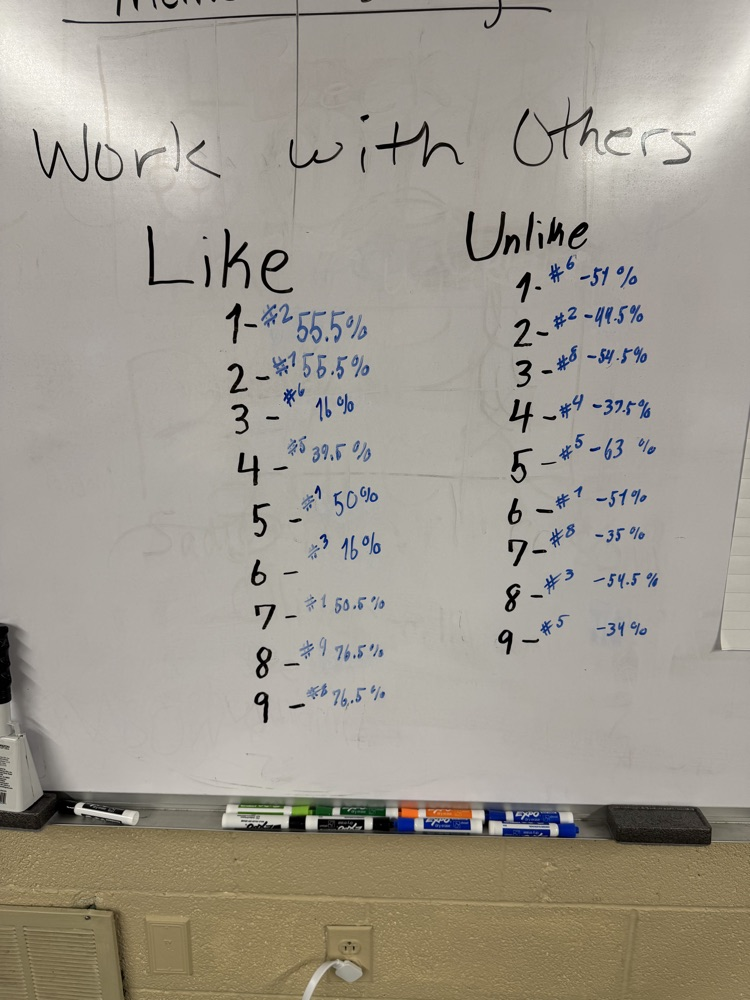 Work with Others
Like
1- #2 55.5%
2- #1 55.5%
3- #6 16%
4- #5 39.5%
5- #1 50%
6- #3 16%
7- #1 50.5%
8- #9 76.5%
9- #8 76.5%
Unlike
1- #6 -51%
2- #2 -49.5%
3- #8 -54.5%
4- #4 -37.5%
5- #5 -63 %
6- #1 -51%
7- #8 -35%
8- #3 -54.5%
9- #5 -34%
EXPO
EXPO
EXPO
EXPO
EXPO